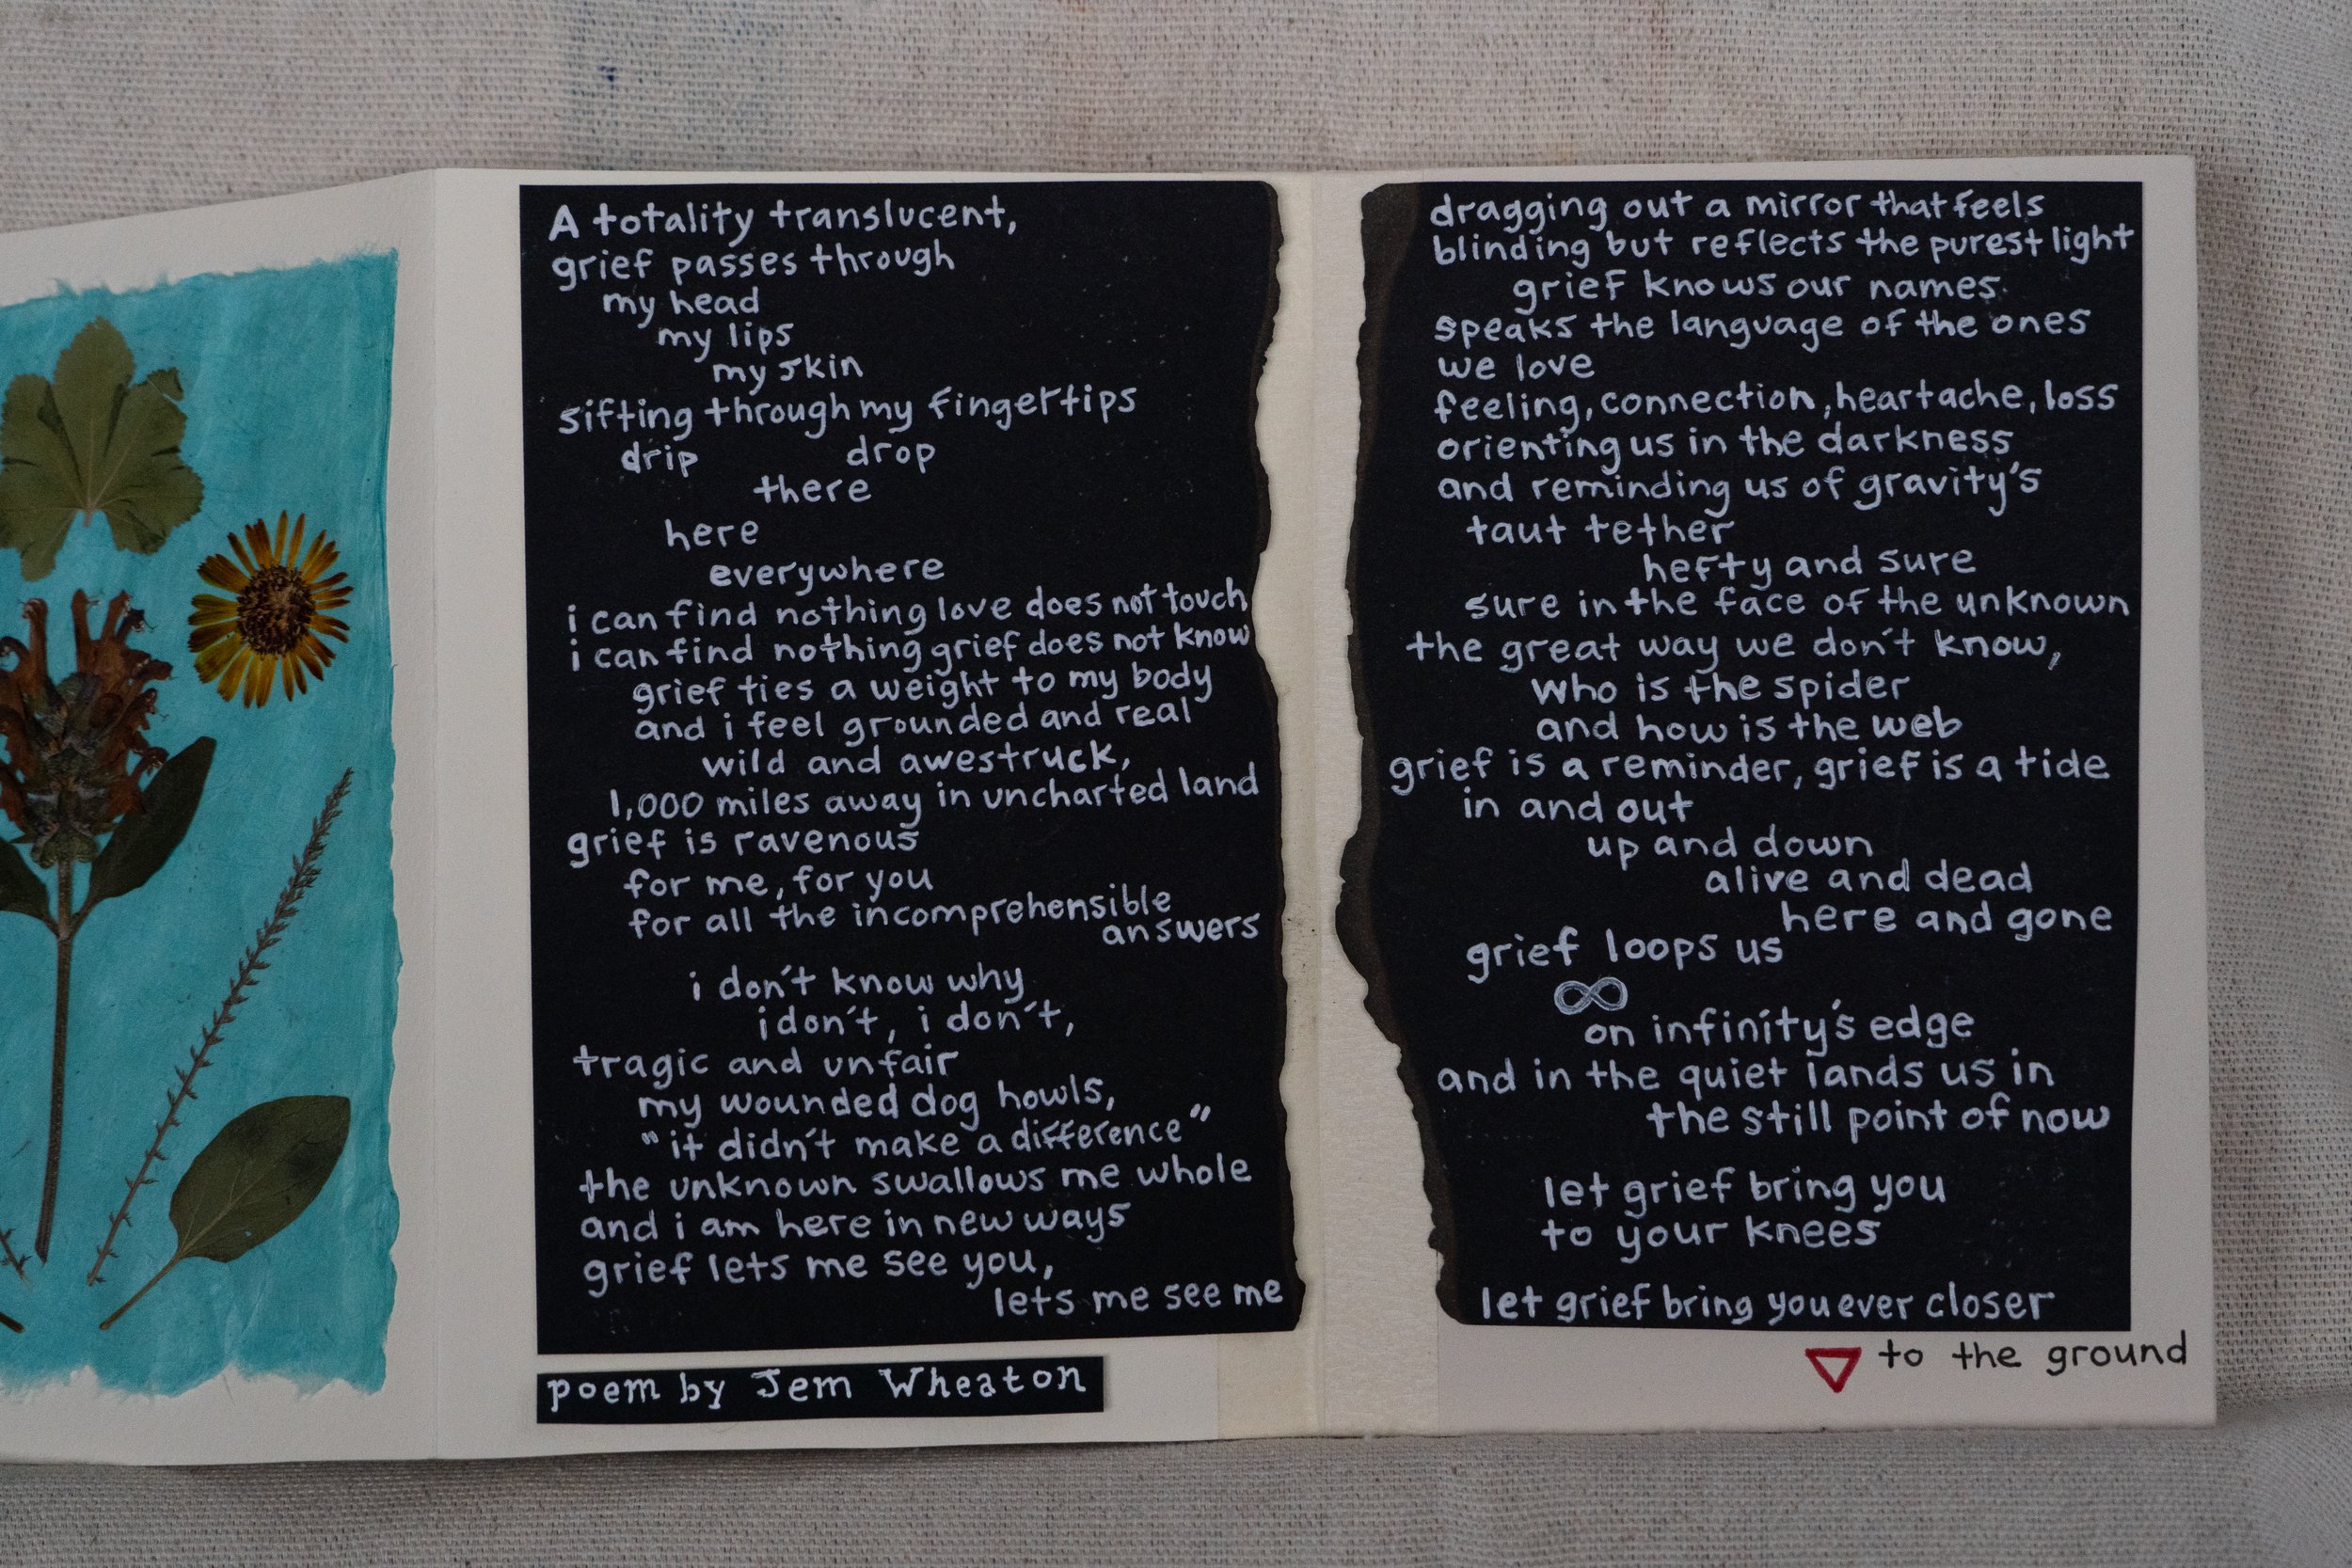 A totality translucent,
grief passes through
my head
my lips
my skin
sifting through my fingertips
drip drop
there
here
everywhere
i can find nothing love does not touch
i can find nothing grief does not know
grief ties a weight to my body
and i feel grounded and real
wild and awestruck,
1,000 miles away in uncharted land
grief is ravenous
for me, for you
for all the incomprehensible
answers
i don't know why
i don't, i don't,
tragic and unfair
my wounded dog howls,
"it didn't make a difference"
the unknown swallows me whole
and i am here in new ways
grief lets me see you,
lets me see me
poem by Jem Wheaton
dragging out a mirror that feels
blinding but reflects the purest light
grief knows our names
speaks the language of the ones
we love
feeling, connection, heartache, loss
orienting us in the darkness
and reminding us of gravity's
taut tether
hefty and sure
sure in the face of the unknown
the great way we don't know,
who is the spider
and how is the web
grief is a reminder, grief is a tide
in and out
up and down
alive and dead
here and gone
grief loops us
∞
on infinity's edge
and in the quiet lands us in
the still point of now
let grief bring you
to your knees
let grief bring you ever closer
to the ground